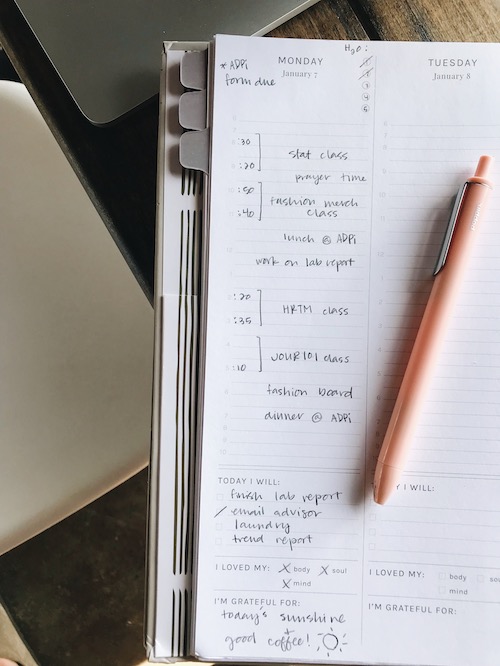 H2O:
* ADPi
form due
MONDAY
January 7
1
2
3
4
5
:30
stat class
:20
prayer time
:50
fashion merch
:40
class
lunch @ ADPi
work on lab report
:20
HRTM class
:35
JOUR101 class
:10
fashion board
dinner @ ADPi
TODAY I WILL:
finish lab report
email advisor
laundry
trend report
I LOVED MY: X body X soul
X mind
I'M GRATEFUL FOR:
today's sunshine
+
good coffee!
TUESDAY
January 8
I WILL:
I LOVED MY: body
mind
I'M GRATEFUL FOR: